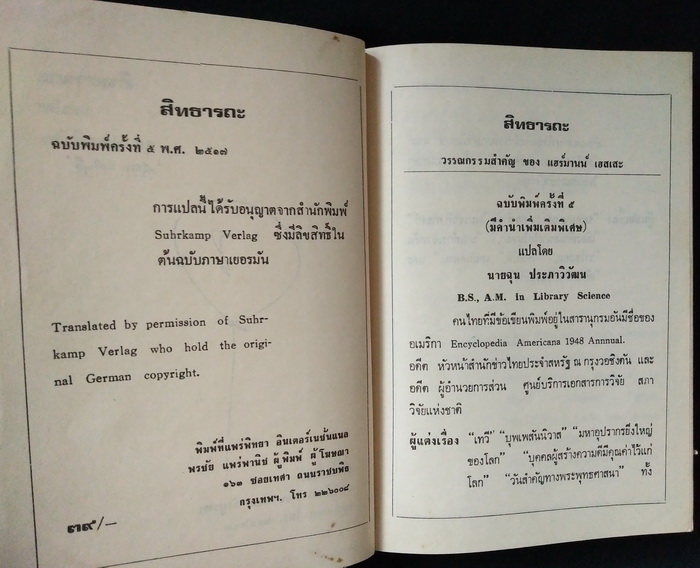 สิทธารถะ
ฉบับพิมพ์ครั้งที่ ๕ พ.ศ. ๒๕๑๗
การแปลนี้ได้รับอนุญาตจากสำนักพิมพ์
Suhrkamp Verlag ซึ่งมีลิขสิทธิ์ใน
ต้นฉบับภาษาเยอรมัน
Translated by permission of Suhr-
kamp Verlag who hold the origi-
nal German copyright.
พิมพ์ที่แพร่พิทยา อินเตอร์เนชั่นแนล
พรชัย แพร่พานิช ผู้พิมพ์ ผู้โฆษณา
๑๖๓ ซอยเทศา ถนนราชบพิธ
กรุงเทพฯ. โทร ๒๒๖๐๐๘
๓๕/–
สิทธารถะ
วรรณกรรมสำคัญ ของ แฮร์มานน์ เฮสเสะ
ฉบับพิมพ์ครั้งที่ ๕
(มีคำนำเพิ่มเติมพิเศษ)
แปลโดย
นายฉุน ประภาวิวัฒน
B.S., A.M. in Library Science
คนไทยที่มีข้อเขียนพิมพ์อยู่ในสารานุกรมอันมีชื่อของ
อเมริกา Encyclopedia Americana 1948 Annnual.
อดีต หัวหน้าสำนักข่าวไทยประจำสหรัฐ ณ กรุงวอชิงตัน และ
อดีต ผู้อำนวยการส่วน ศูนย์บริการเอกสารการวิจัย สภา
วิจัยแห่งชาติ
ผู้แต่งเรื่อง "เทวี" "บุพเพสันนิวาส" "มหาอุปรากรยิ่งใหญ่
ของโลก" "บุคคลผู้สร้างความดีมีคุณค่าไว้แก่
โลก" "วันสำคัญทางพระพุทธศาสนา" ทั้ง